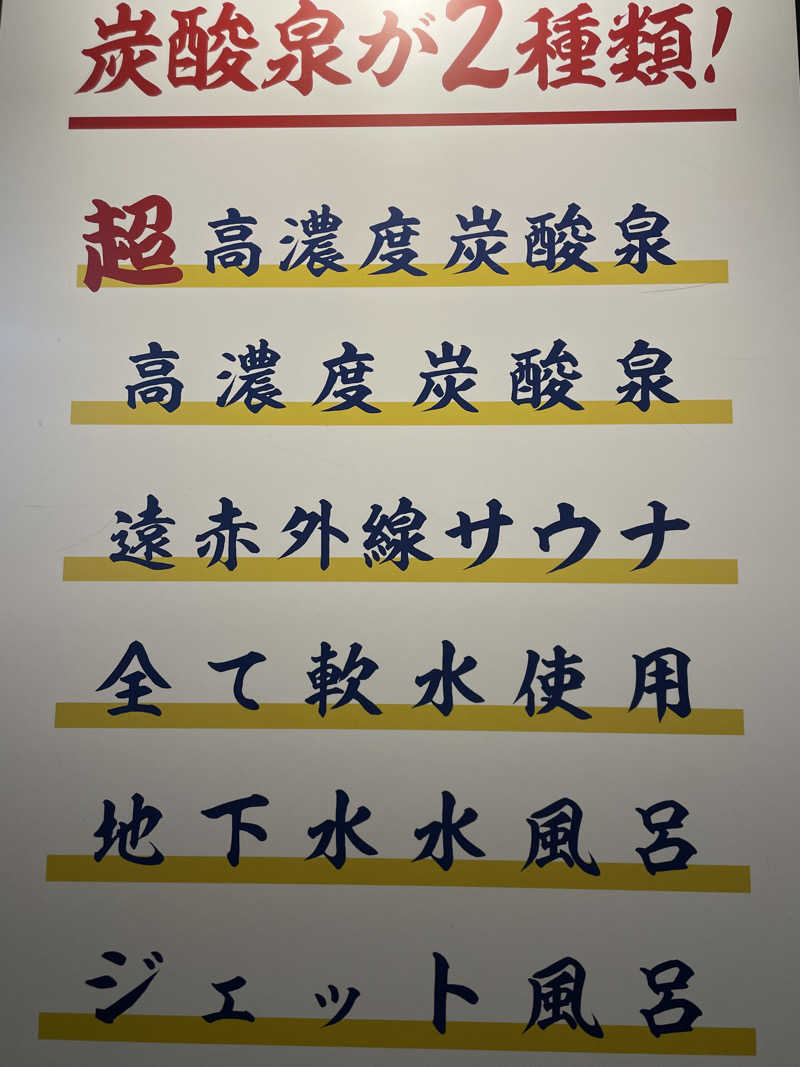 炭酸泉が2種類!
超高濃度炭酸泉
高濃度炭酸泉
遠赤外線サウナ
全て軟水使用
地下水水風呂
ジェット風呂